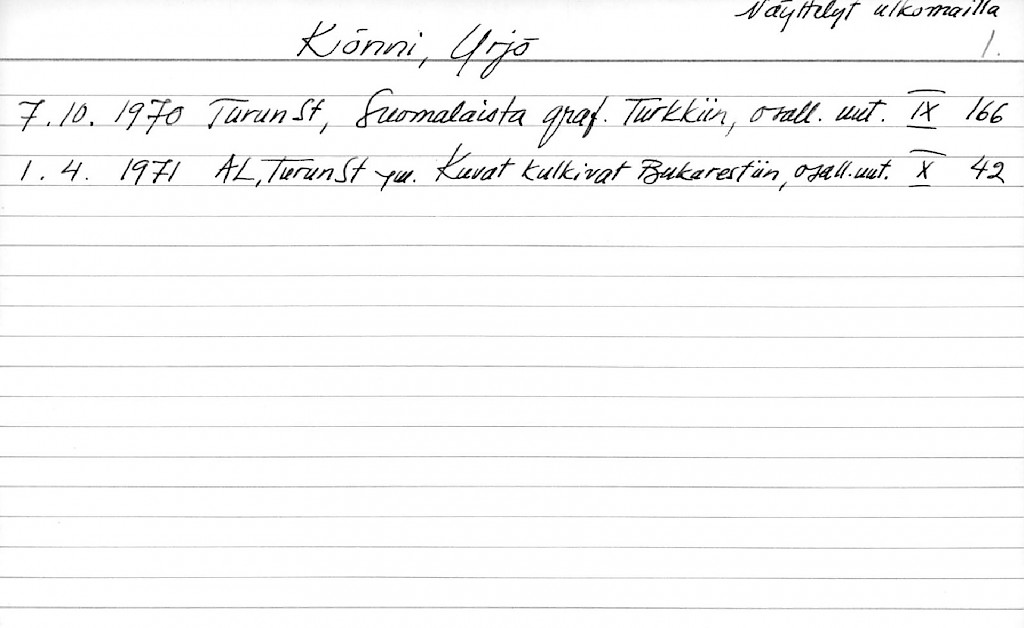 Näyttelyt ulkomailla
1.
Könni, Yrjö
7.10. 1970 TurunSt, Suomalaista graf. Turkkiin, osall. uut. IX 166
1. 4. 1971 AL, TurunSt ym. Kuvat kulkivat Bukarestiin, osall. uut. X 42